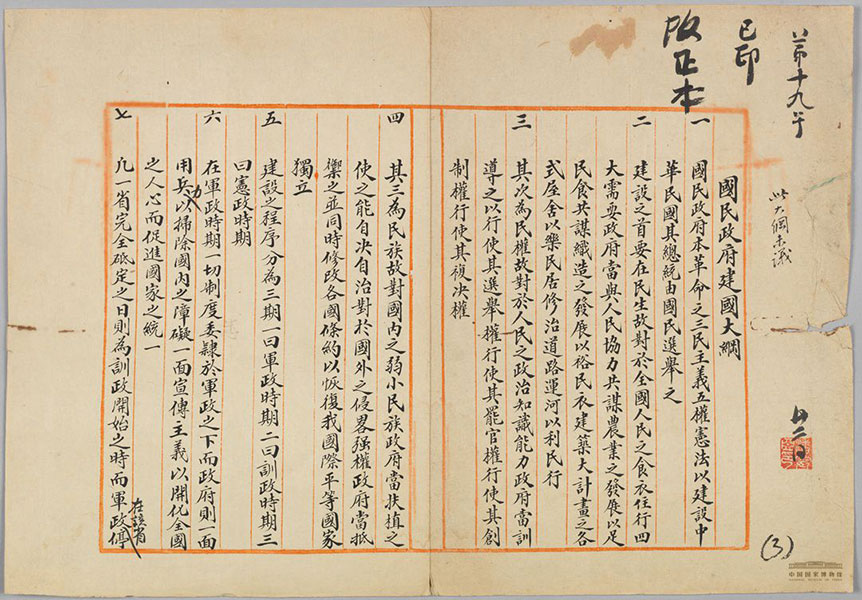 十九
已印
正本
此大綱未議
國民政府建國大綱
一 國民政府本革命之三民主義五權憲法以建設中
華民國其總統由國民選舉之
二 建設之首要在民生故對於全國人民之食衣住行四
大需要政府當與人民協力共謀農業之發展以足
民食共謀織造之發展以裕民衣建築大計畫之各
式屋舍以樂民居修治道路運河以利民行
三 其次為民權故對於人民之政治知識能力政府當訓
導之以行使其選舉權行使其罷官權行使其創
制權行使其複決權
四 其三為民族故對國內之弱小民族政府當扶植之
使之能自决自治對於國外之侵畧强權政府當抵
禦之並同時修改各國條約以恢復我國際平等國家
獨立
五 建設之程序分為三期一曰軍政時期二曰訓政時期三
曰憲政時期
六 在軍政時期一切制度委隸於軍政之下而政府則一面
用兵力以掃除國內之障礙一面宣傳主義以開化全國
之人心而促進國家之統一
七 凡一省完全砥定之日則為訓政開始之時而軍政停
在該省
(3)
中国国家博物馆